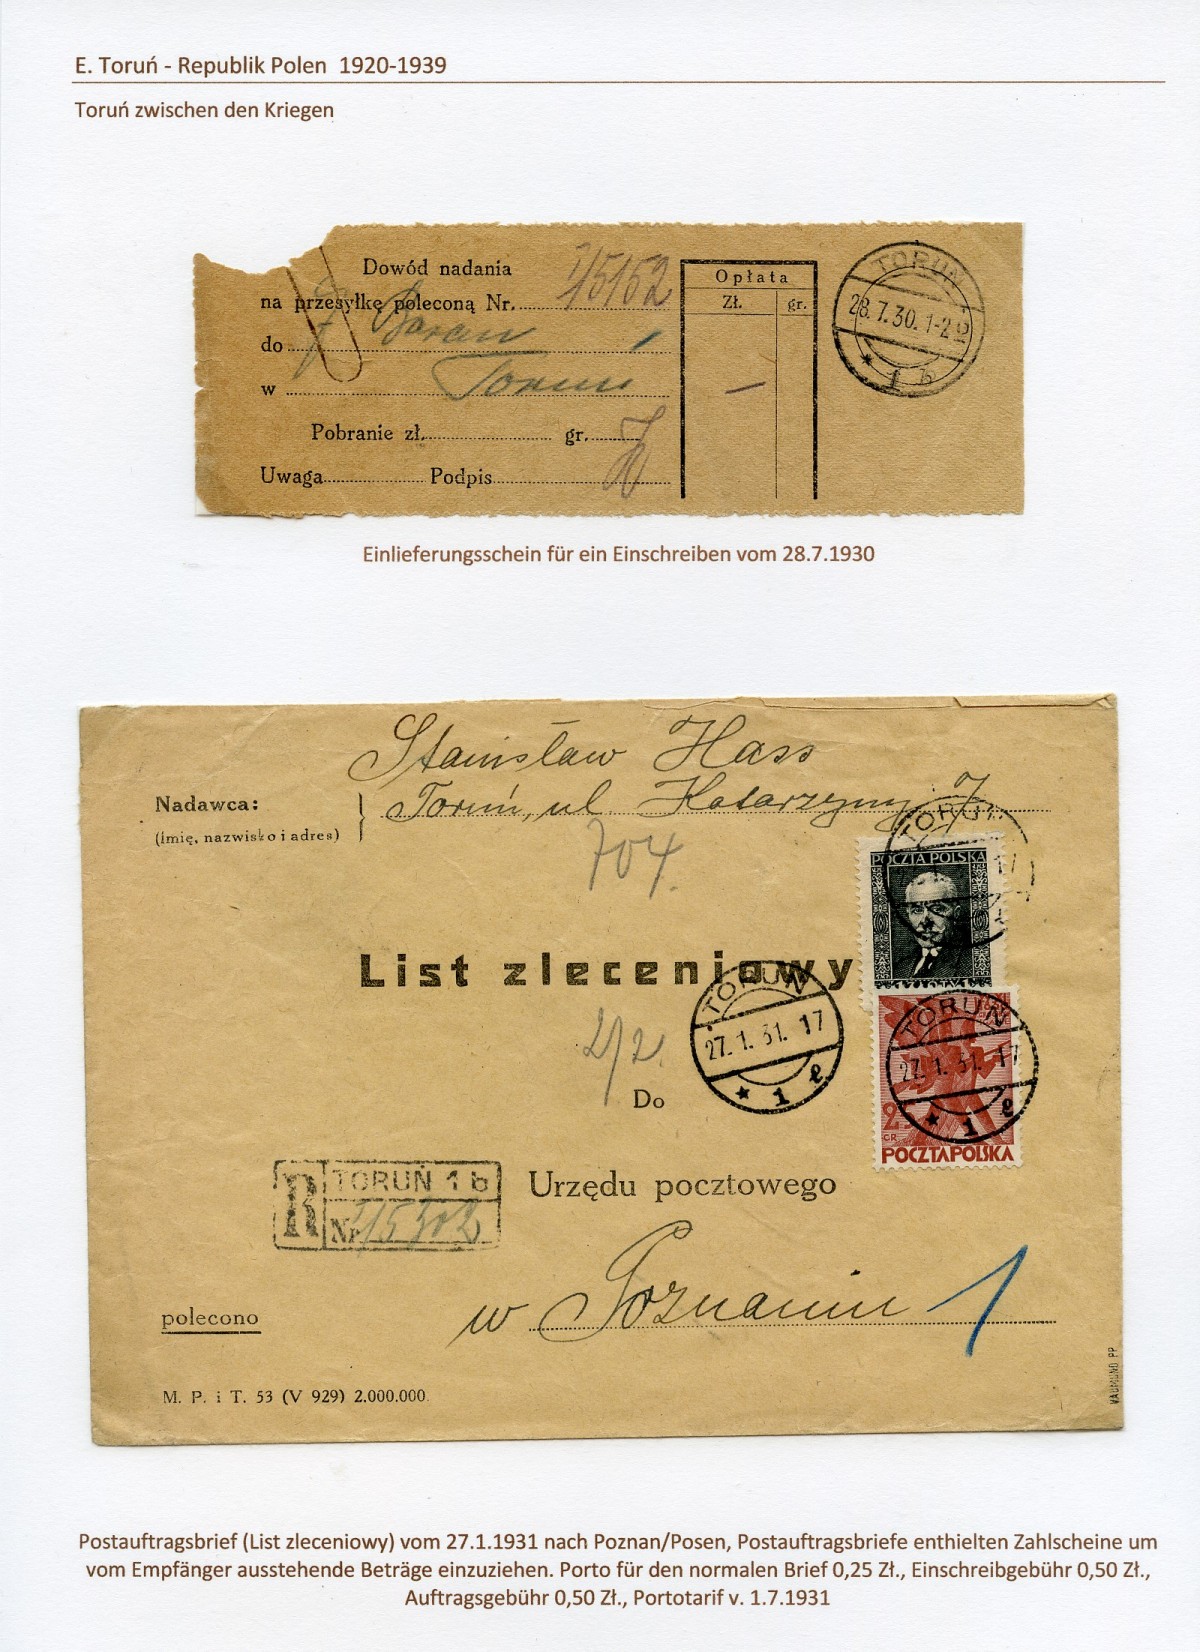 E. Toruń - Republik Polen 1920-1939
Toruń zwischen den Kriegen
Dowód nadania
na przesyłkę poleconą Nr. 1/5152
do Baran
w Toruń
Pobranie zł. gr.
Uwaga Podpis
Opłata
Zł. gr.
TORUŃ
28.7.30.1-2
* 1 b
Einlieferungsschein für ein Einschreiben vom 28.7.1930
Stanisław Hass
Nadawca:
(imię, nazwisko i adres)
Toruń, ul. Katarzyny 7
704.
POCZTA POLSKA
TORUŃ
17
List zleceniowy
2/2
Do
TORUŃ
27.1.31.17
* 1 e
TORUŃ
27.1.31.17
* 1 e
2
GR
POCZTA POLSKA
R
TORUŃ 1 b
Nr 1/5302
Urzędu pocztowego
w Poznaniu 1
polecono
M. P. i T. 53 (V 929) 2.000.000.
VAUMUND PP
Postauftragsbrief (List zleceniowy) vom 27.1.1931 nach Poznan/Posen, Postauftragsbriefe enthielten Zahlscheine um
vom Empfänger ausstehende Beträge einzuziehen. Porto für den normalen Brief 0,25 Zł., Einschreibgebühr 0,50 Zł.,
Auftragsgebühr 0,50 Zł., Portotarif v. 1.7.1931